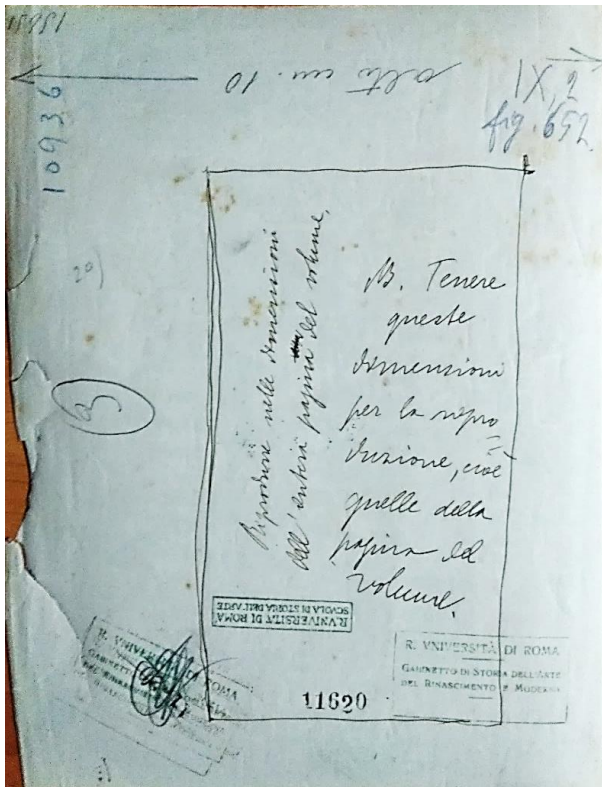 alto cm. 10
IX, 2
fig. 652.
10936
20)
3
Riprodurre nelle dimensioni
dell'intera pagina del volume.
NB. Tenere
queste
dimensioni
per la ripro
duzione, cioè
quelle della
pagina del
volume.
R. VNIVERSITÀ DI ROMA
SCVOLA DI STORIA DELL'ARTE
R. VNIVERSITÀ DI ROMA
GABINETTO DI STORIA DELL'ARTE
DEL RINASCIMENTO E MODERNA
11620
R. VNIVERSITÀ ROMA
GABINETTO